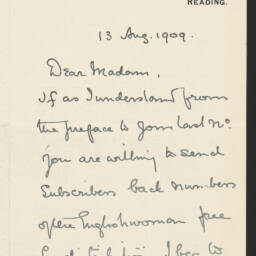 READING.
13 Aug. 1909.
Dear Madam,
If as I understand from
the preface to your last No.
you are willing to send
Subscribers back numbers
of the Englishwoman free
I beg to